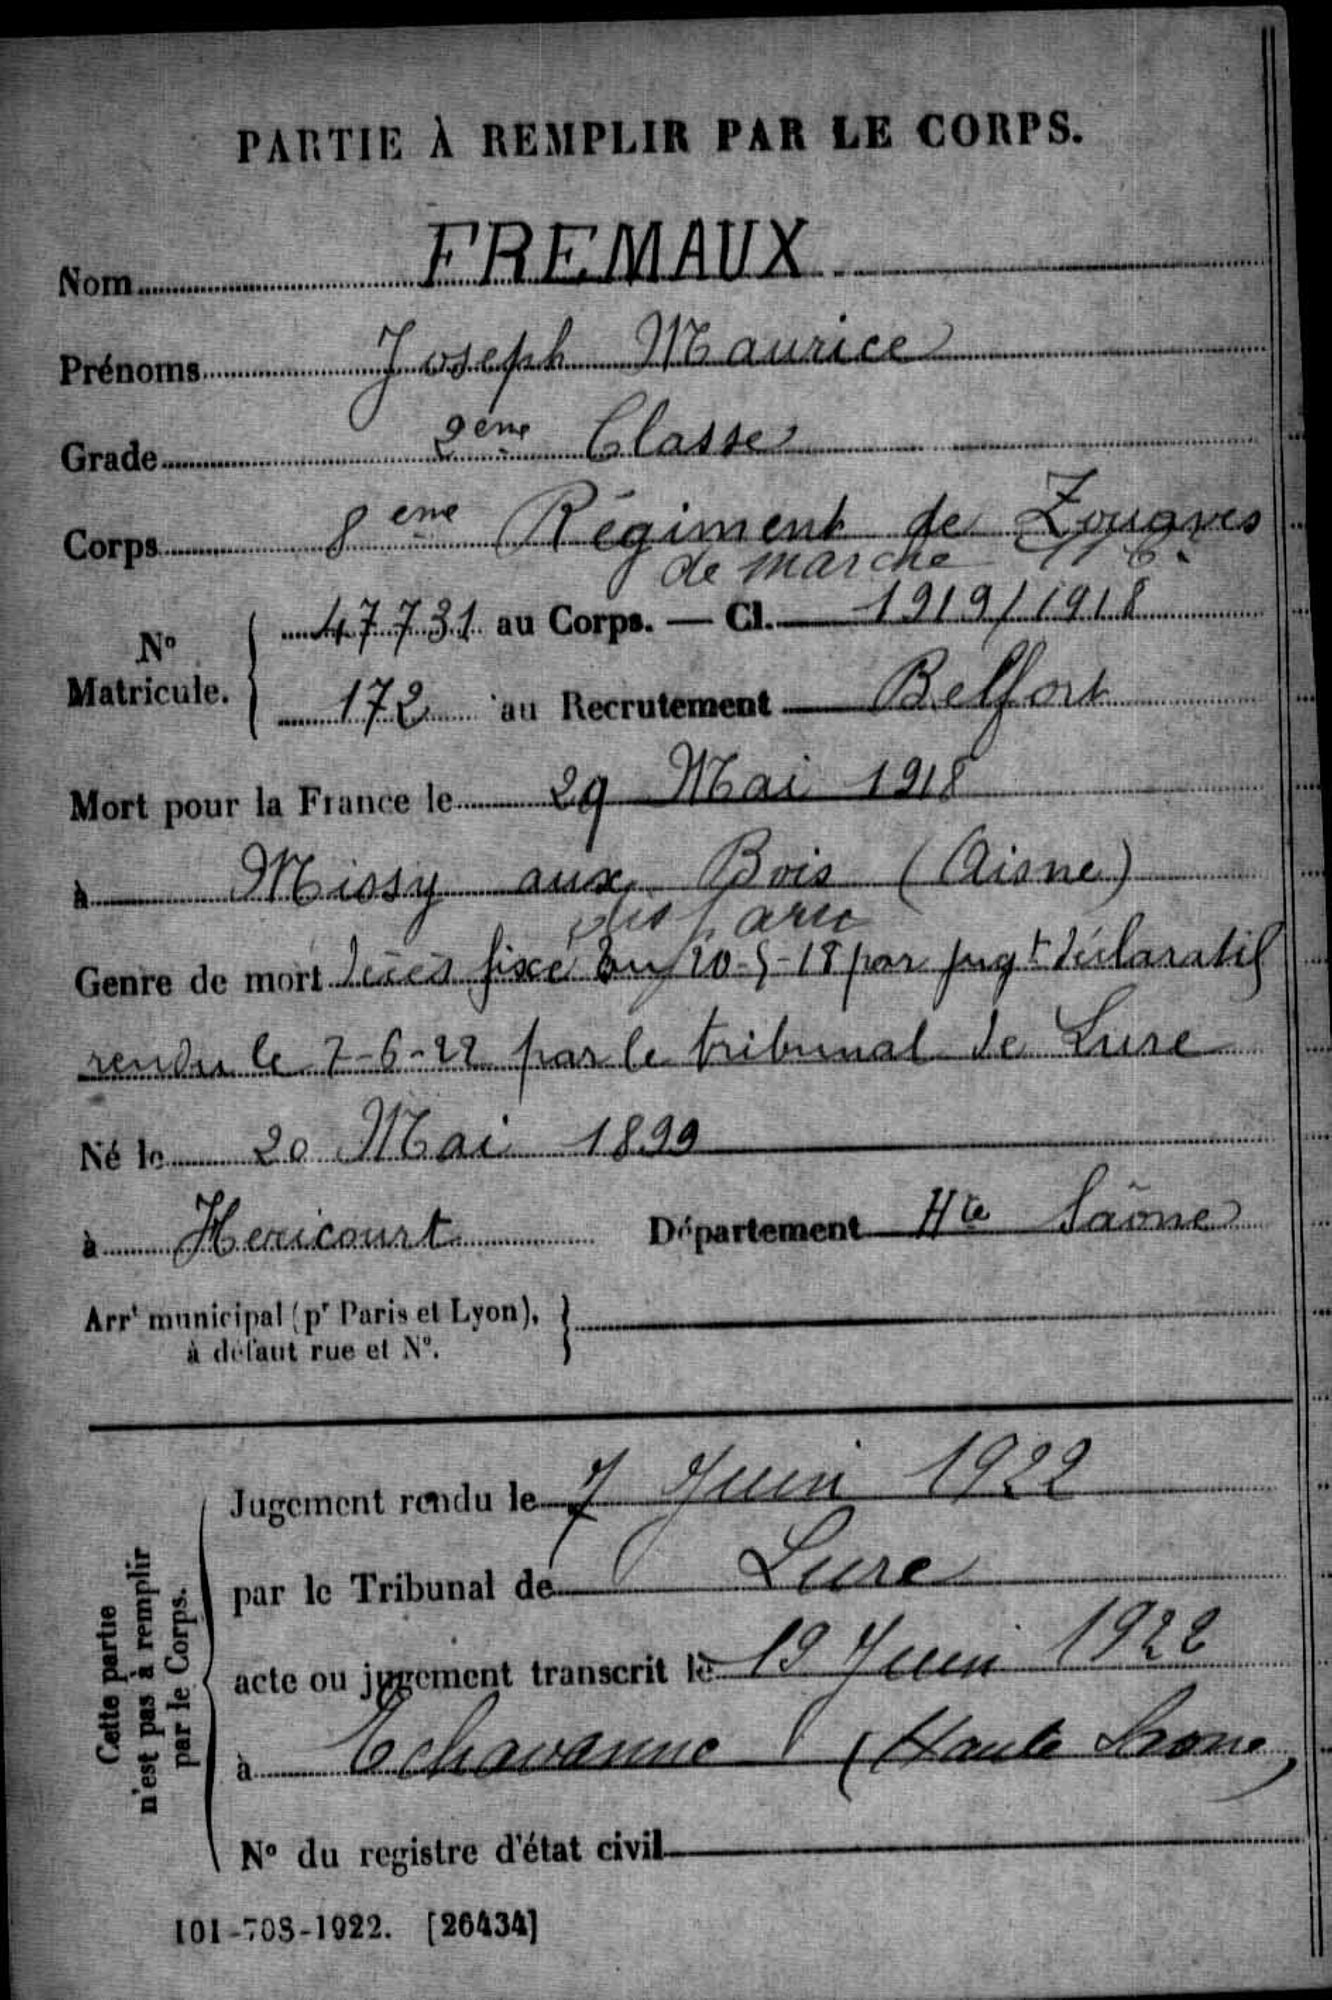 PARTIE À REMPLIR PAR LE CORPS.
Nom FREMAUX
Prénoms Joseph Maurice
Grade 2ème Classe
Corps 8eme Régiment de Zouaves
de marche
N° Matricule. 47731 au Corps. — Cl. 1919/1918
172 au Recrutement Belfort
Mort pour la France le 29 Mai 1918
à Missy aux Bois (Aisne)
disparu
Genre de mort décès fixé au 20-5-18 par jugt déclaratif
rendu le 7-6-22 par le tribunal de Lure
Né le 20 Mai 1899
à Hericourt Département Hte Saône
Arrt municipal (pr Paris et Lyon),
à défaut rue et N°.
Jugement rendu le 7 Juin 1922
par le Tribunal de Lure
acte ou jugement transcrit le 19 Juin 1922
à Echavanne (Haute Saone)
N° du registre d'état civil
Cette partie
n'est pas à remplir
par le Corps.
101-708-1922. [26434]